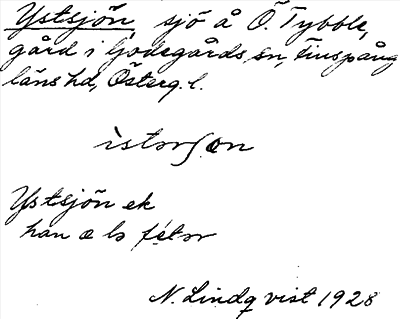 Ystsjön, sjö å Ö. Tybble,
gård i Godegårds sn, Finspång
läns hd, Österg. l.
ìstorʃœn
Ystsjön ek
han œ ls fétor
N. Lindqvist 1928